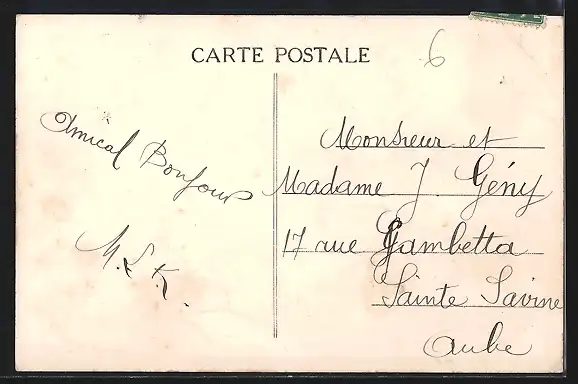 CARTE POSTALE
6
Amical Bonjour
M. L K.
Monsieur et
Madame J. Gény
17 rue Gambetta
Sainte Savine
Aube